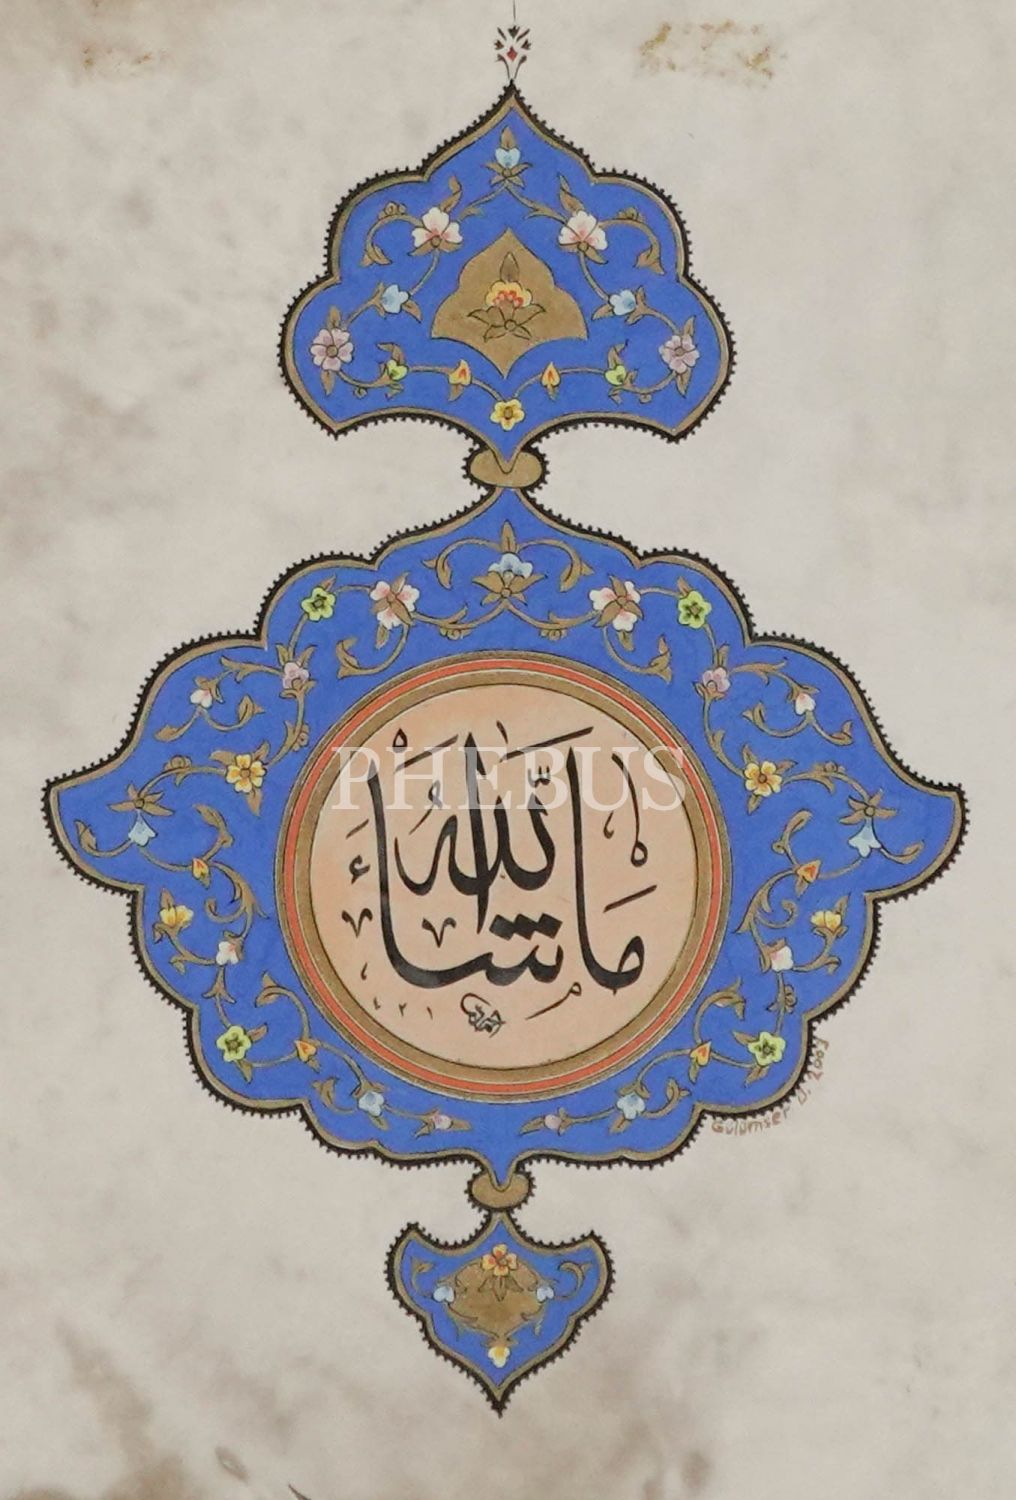 PHEBUS
ما شاء الله
Gülümser D. 2003